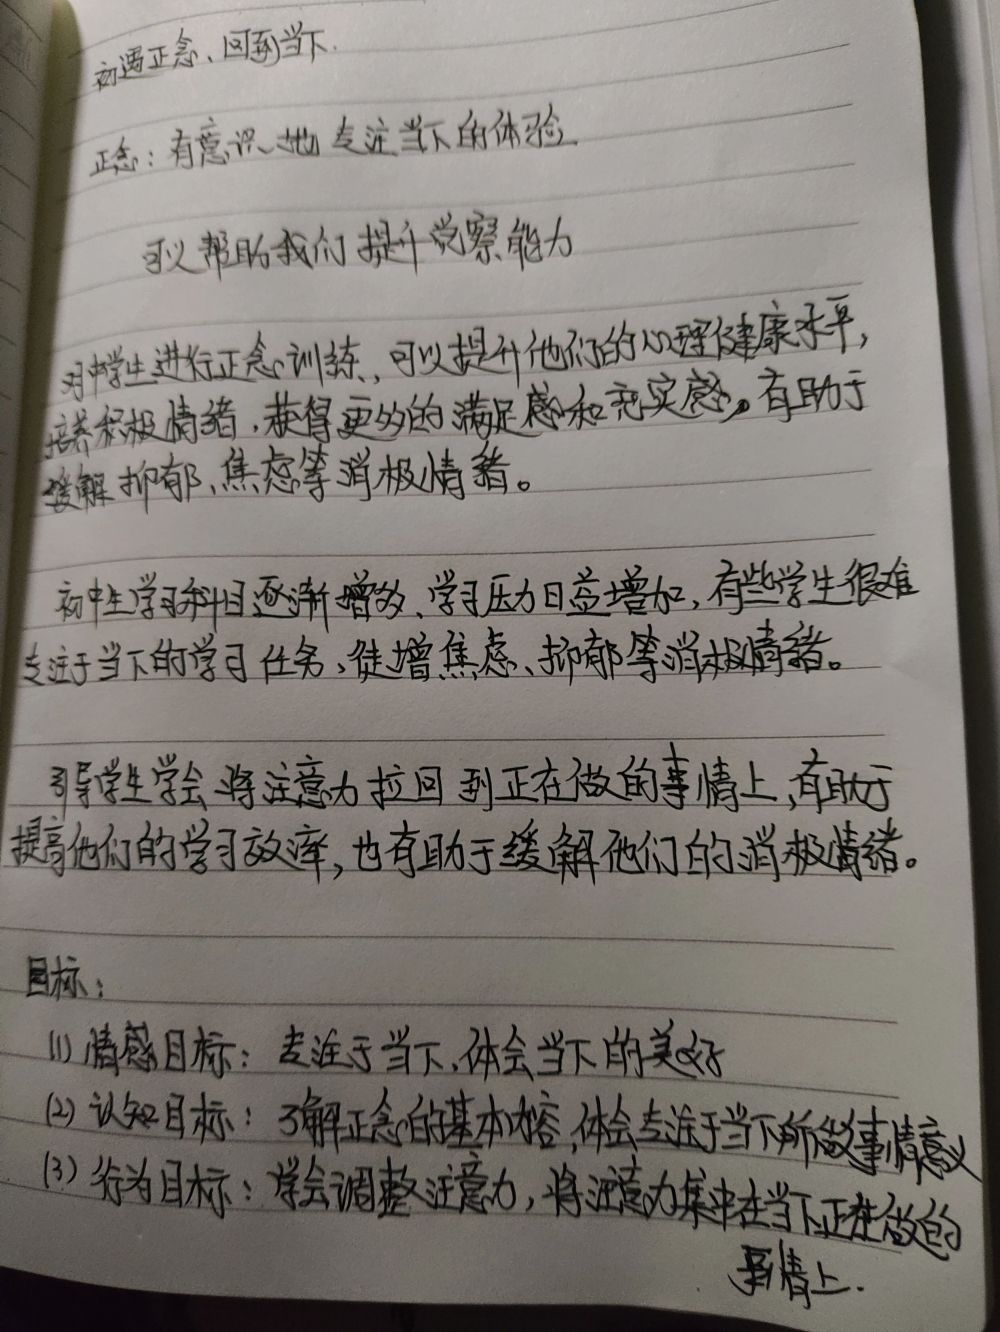 初遇正念、回到当下.
正念：有意识地专注当下的体验
可以帮助我们提升觉察能力
对中学生进行正念训练，可以提升他们的心理健康水平，
培养积极情绪，获得更多的满足感和充实感。有助于
缓解抑郁、焦虑等消极情绪。
初中生学习科目逐渐增多、学习压力日益增加，有些学生很难
专注于当下的学习任务，徒增焦虑、抑郁等消极情绪。
引导学生学会将注意力拉回到正在做的事情上，有助于
提高他们的学习效率，也有助于缓解他们的消极情绪。
目标：
(1) 情感目标：专注于当下，体会当下的美好
(2) 认知目标：了解正念的基本内容，体会专注于当下所做事情意义
(3) 行为目标：学会调整注意力，将注意力集中在当下正在做的
事情上.